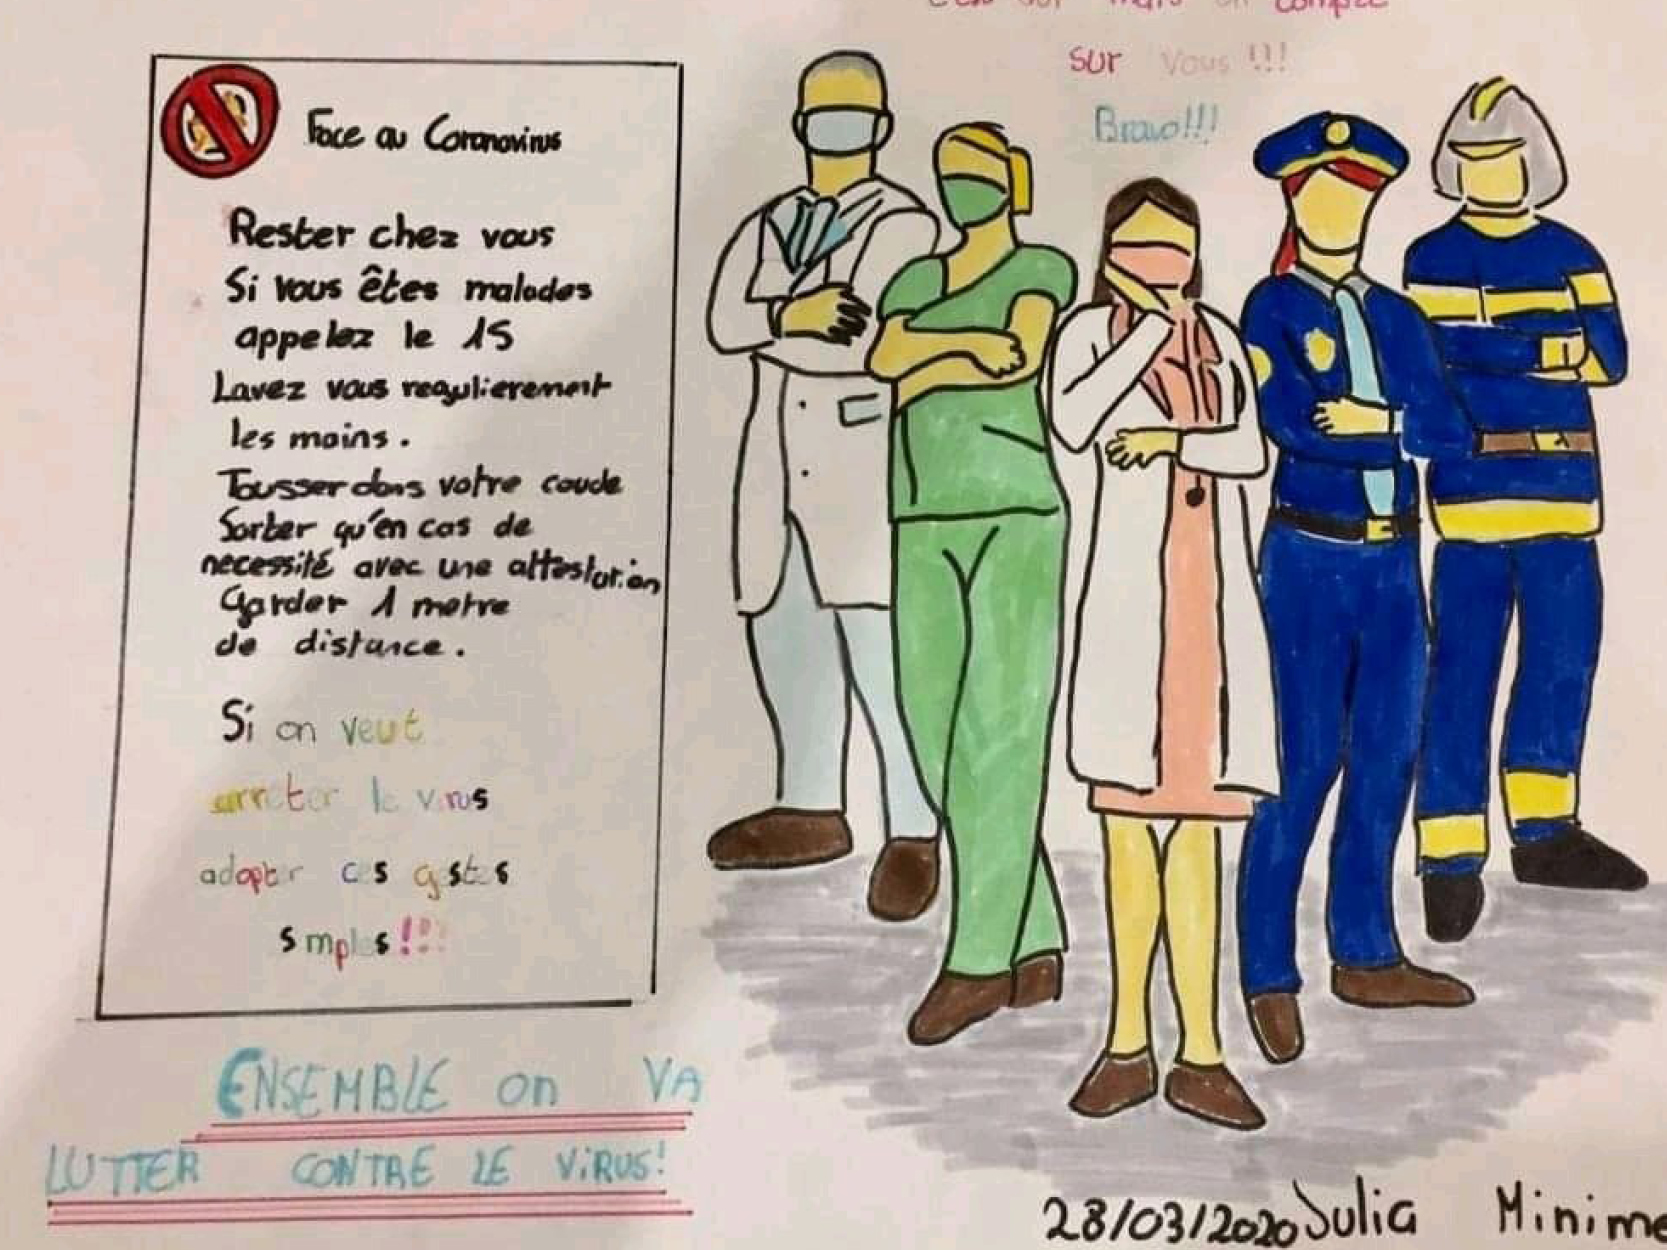 c'est dur mais on compte
sur vous !!!
Bravo!!!
Face au Coronavirus
Rester chez vous
Si vous êtes malades
appelez le 15
Lavez vous regulierement
les mains.
Tousser dans votre coude
Sorter qu'en cas de
necessité avec une attestation
Garder 1 metre
de distance.
Si on veut
arreter le virus
adopter ces gestes
simples!!!
ENSEMBLE on VA
LUTTER CONTRE LE ViRUS!
28/03/2020 Julia Minime